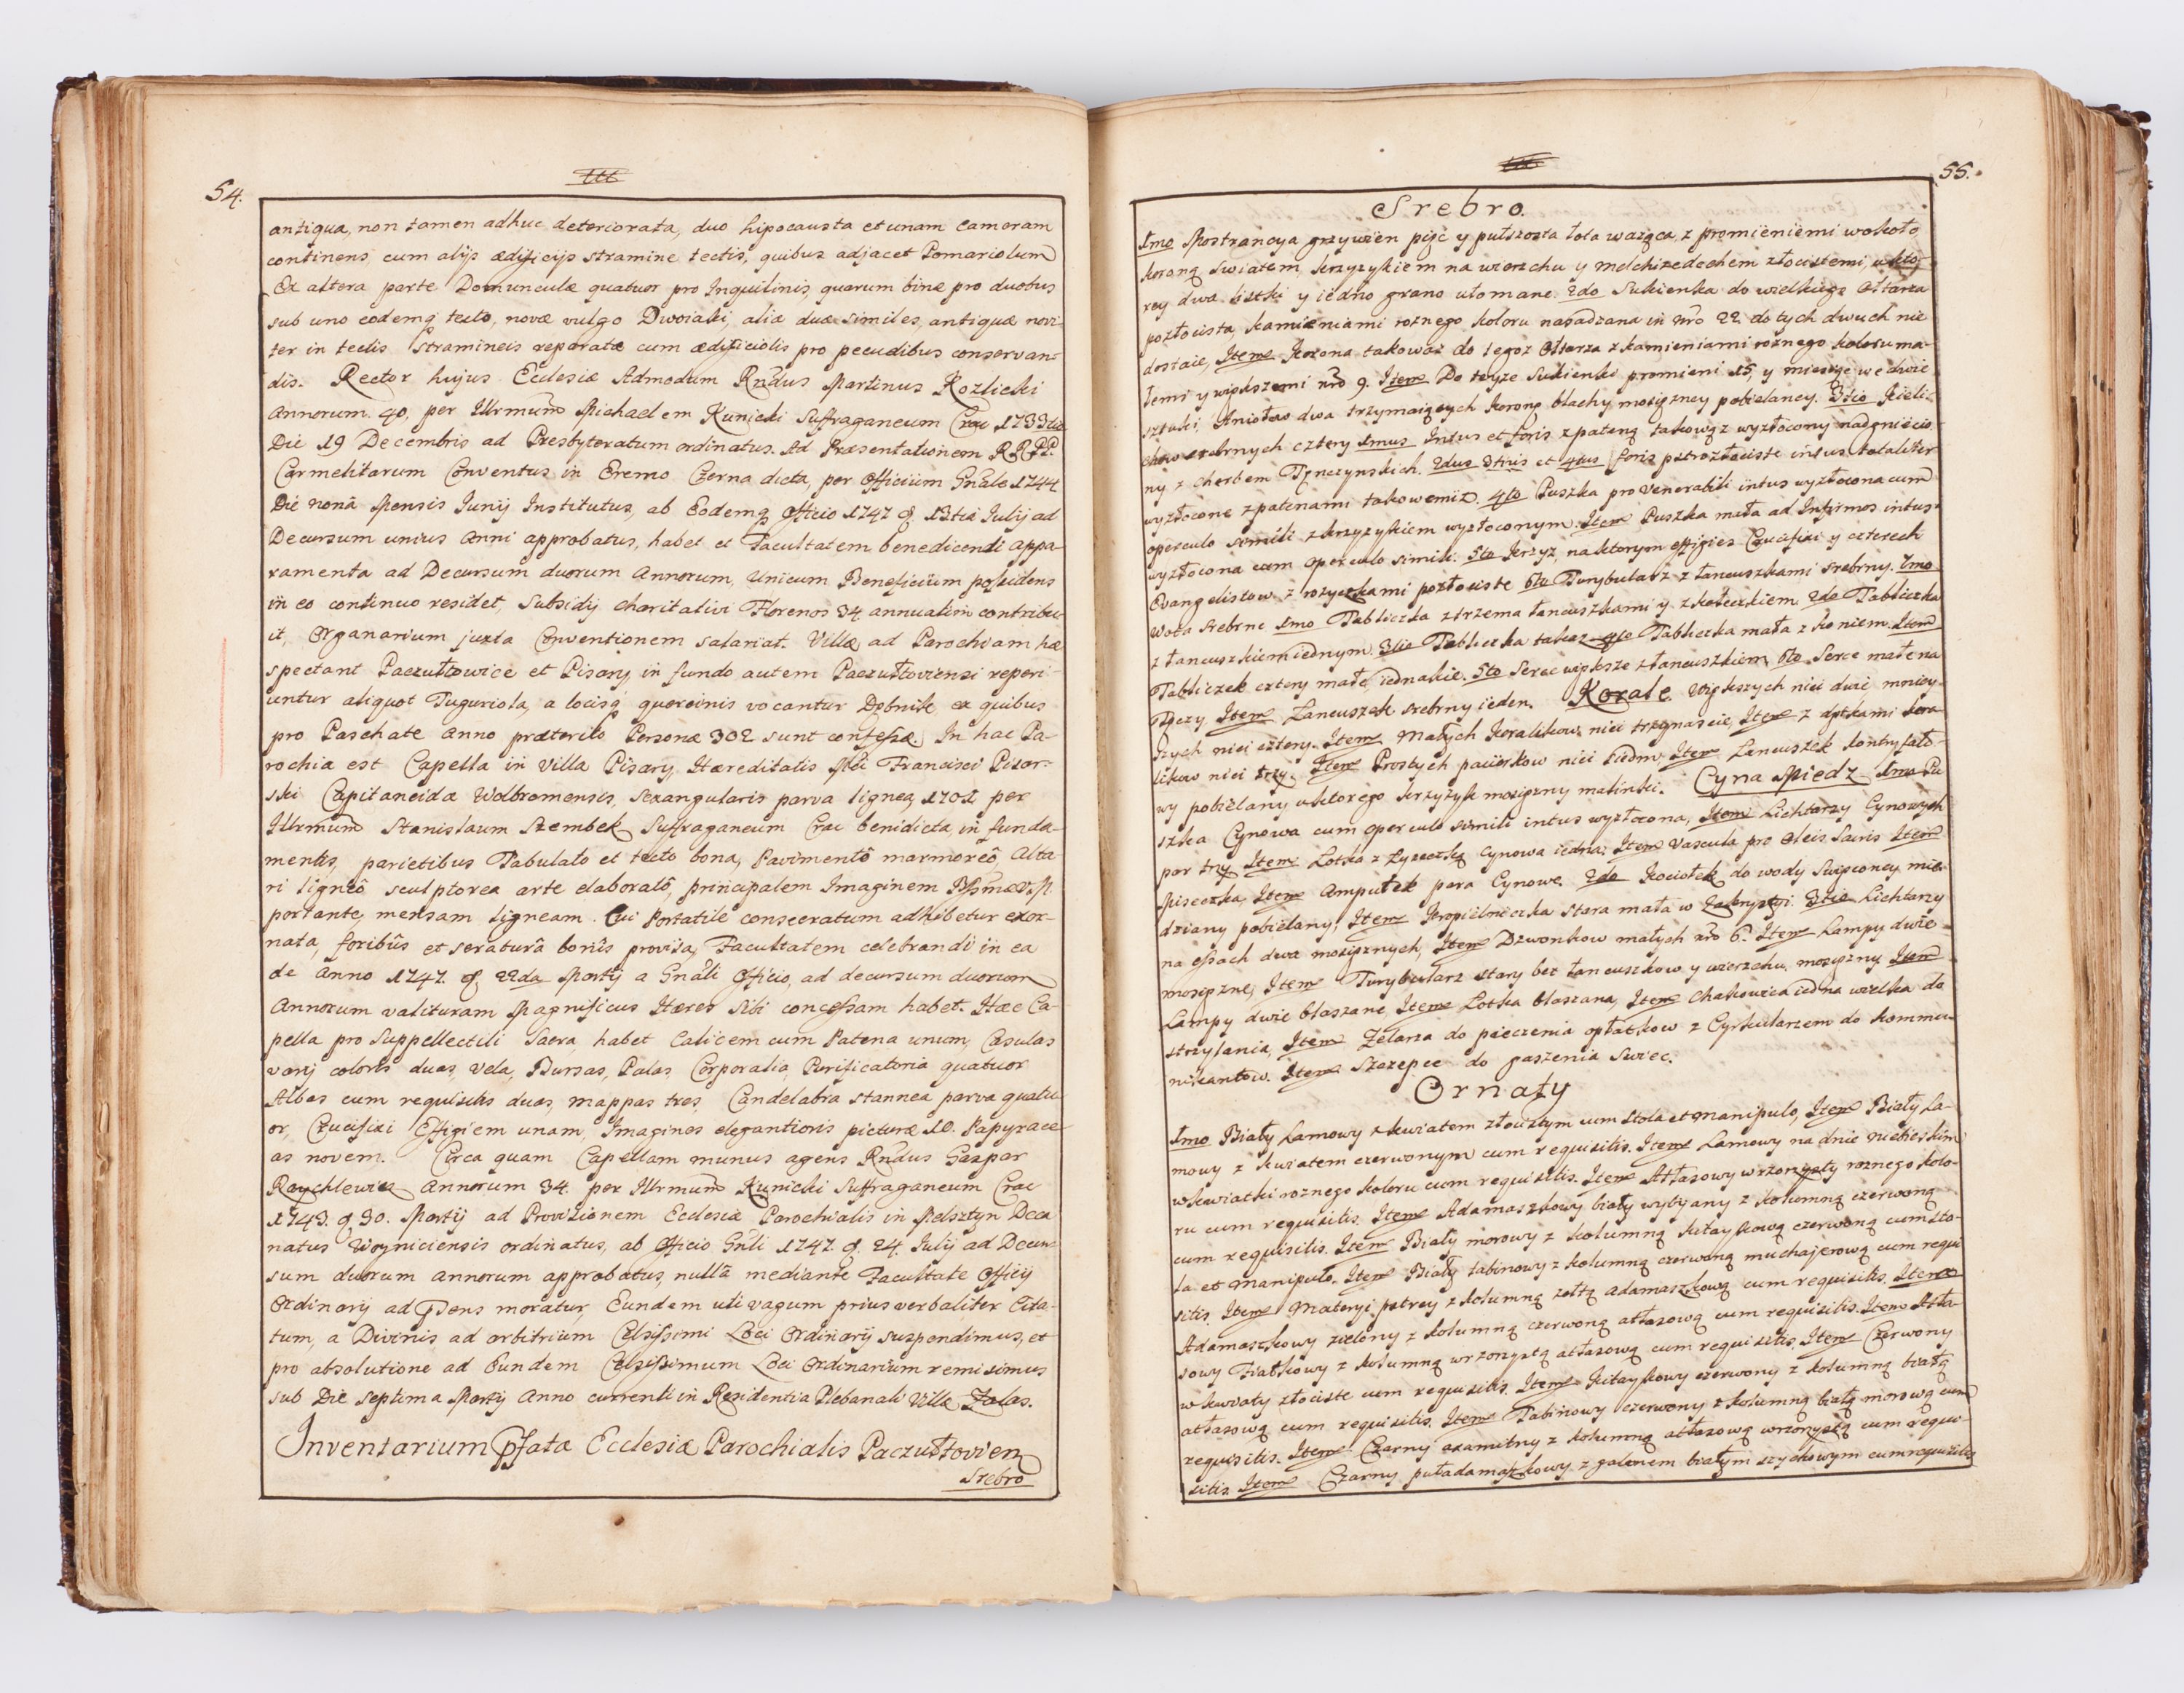 54.
antiqua, non tamen adhuc deteriorata, duo hipocausta et unam Cameram
continens, cum alijs ædificijs stramine tectis, quibus adjacet Pomariolum
Ex altera parte Domunculæ quatuor pro Inquilinis, quarum binæ pro duobus
sub uno eodemq tecto, novæ vulgo Dwoiaki, aliæ duæ similes, antiquæ novi-
ter in tectis stramineis reparatæ cum ædificiolis pro pecudibus conservan-
dis. Rector hujus Ecclesiæ Admodum Rndus Martinus Kozlicki
Annorum 40. per Illrmum Michaelem Kunicki Suffraganeum Crac 1733tio
Die 19 Decembris ad Presbyteratum ordinatus. Ad Præsentationem RRPP.
Carmelitarum Conventus in Eremo Czerna dicta, per Officium Gnale 1744
Die nonâ Mensis Junij Institutus, ab Eodemq Officio 1747 d. 13tia Julij ad
Decursum unius Anni approbatus, habet et Facultatem benedicendi appa-
ramenta ad Decursum duorum Annorum, Unicum Beneficium possidens
in eo continuo residet, Subsidij charitativi Florenos 34 annuatim contribu-
it, Organarium juxta Conventionem salariat. Villæ ad Parochiam hæ
spectant Paczułtowice et Pisary, in fundo autem Paczułtoviensi reperi-
untur aliquot Tuguriola, a locisq quercinis vocantur Dębnik ex quibus
pro Paschate Anno præterito Personæ 302 sunt confessæ. In hac Pa-
rochia est Capella in Villa Pisary Hæreditatis Mci Francisci Pisar-
ski Capitaneidæ Wolbromensis, sexangularis parva lignea, 1702 per
Illrmum Stanislaum Szembek Suffraganeum Crac benidicta, in funda-
mentis, parietibus Tabulato et tecto bona, Pavimentô marmoreô, Alta
ri ligneô sculptorea arte elaboratô, principalem Imaginem Bssmæ V. M.
portante, mensam ligneam. Cui Portatile consecratum adhibetur exor-
nata, foribûs et seraturâ bonîs provisa, Facultatem celebrandi in ea
de Anno 1747. d. 22da Martij a Gnali Officio, ad decursum duorum
Annorum valituram Magnificus Hæres sibi concessam habet. Hæc Ca-
pella pro Suppellectili Sacra, habet Calicem cum Patena unum, Casulas
varij coloris duas, Vela, Bursas, Palas, Corporalia, Purificatoria quatuor
Albas cum requisitis duas, mappas tres, Candelabra stannea parva quatu-
or, Crucifixi Effigiem unam, Imagines elegantioris picturæ 10. Papyrace
as novem. Circa quam Capellam munus agens Rndus Gaspar
Raychlewicz Annorum 34. per Illrmum Kunicki Suffraganeum Crac
1743. d. 30. Martij ad Provisionem Ecclesiæ Parochialis in Melsztyn Deca
natus Woyniciensis ordinatus, ab Officio Gnli 1747. d. 24. Julij ad Decur-
sum duorum annorum approbatus, nullâ mediante Facultate Officij
Ordinarij ad psens moratur, Eundem uti vagum prius verbaliter Cita-
tum, a Divinis ad arbitrium Celsissimi Loci Ordinarij suspendimus, et
pro absolutione ad Eundem Celsissimum Loci Ordinarium remisimus
sub Die septima Martij Anno currenti in Residentia Plebanali Villæ Zalas.
Inventarium pfatæ Ecclesiæ Parochialis Paczułtovien
Srebro
55.
Srebro.
1mo Mostrancya grzywien pięć y pułszosta łota ważąca, z promieniemi wokoło
koroną swiatem, krzyzykiem na wierzchu y Melchizedechem złocistemi, w kto-
rey dwa listki y iedno grano ułomane. 2do Sukienka do wielkiego Ołtarza
pozłocista, kamieniami roznego koloru nasadzana in nro 22 do tych dwuch nie
dostaie, Item Korona takowaz do tegoz Ołtarza z kamieniami roznego koloru ma-
łemi y większemi nro 9. Item Do teyze Sukienki promieni 15, y miesiąc we dwie
sztuki, Aniołow dwa trzymaiących koronę blachy mosięzney pobielaney. 3tio Kieli-
chow srebrnych cztery 1mus Intus et foris z pateną takową z wyzłocony nadgniecio
ny z cherbem Tęnczynskich. 2dus 3tius et 4tus foris patrozłociste intus totaliter
wyzłocone z patenami takowemiz. 4to Puszka pro Venerabili intus wyzłocona cum
operculo simili z krzyzykiem wyzłoconym. Item Puszka mała ad Infirmos intus
wyzłocona cum operculo simili. 5to Krzyz, na ktorym effigies Crucifixi y czterech
Evangelistow z rozyczkami pozłociste 6to Turybularz z łancuszkami srebrny. 7mo
Wota srebrne 1mo Tabliczka z trzema łancuszkami y z kołeczkiem. 2do Tabliczka
z łancuszkiem iednym. 3tio Tabliczka takaz 4to Tabliczka mała z koniem Item
Tabliczek cztery małe iednakie. 5to Serce większe z łancuszkiem 6to Serce małe na
Tęczy, Item Łancuszek srebrny ieden. Korale Większych nici dwie, mniey-
szych nici cztery. Item Małych Koralikow nici trzynascie, Item z dętkami kora
likow nici trzy. Item Prostych paciorkow nici siedm Item Łancuszek kontryfało-
wy pobielany u ktorego krzyzyk mosięzny malinki. Cyna Miedz 1mo Pu
szka Cynowa cum operculo simili intus wyzłocona, Item Lichtarzy Cynowych
par trzy Item Łotka z Łyzeczką cynowa iedna, Item Vascula pro Oleis Sacris Item
Miseczka, Item Ampułek para Cynowe. 2do Kociołek do wody Swięconey mie-
dziany pobielany, Item Kropielniczka stara mała w Zakrystyi 3tio Lichtarzy
na essach dwa mosięznych, Item Dzwonkow małych nro 6. Item Lampy dwie
mosięzne, Item Turybularz stary bez łancuszkow y wierzchu mosięzny Item
Lampy dwie blaszane, Item Łotka blaszana, Item Chakowica iedna wielka do
strzylania, Item Zelaza do pieczenia opłatkow z Cyrkularzem do kommu-
nikantow. Item Szczepce do gaszenia Swiec.
Ornaty
1mo Biały Lamowy z kwiatem złocistym cum Stola et Manipulo, Item Biały La-
mowy z kwiatem czerwonym cum requisitis. Item Lamowy na dnie niebieskim
w kwiatki roznego koloru cum requisitis. Item Atłasowy wzorzysty roznego kolo-
ru cum requisitis. Item Adamaszkowy biały wybyany z kolumną czerwoną
cum requisitis. Item Biały morowy z kolumną kitaykową czerwoną cum sto-
la et Manipulo. Item Biały tabinowy z kolumną czerwoną muchajerową cum requi
sitis. Item Materyi pstrey z kolumną zołtą adamaszkową cum requisitis. Item
Adamaszkowy zielony z kolumną czerwoną atłasową cum requisitis. Item Atła-
sowy Fiałkowy z kolumną wzorzystą atłasową cum requisitis. Item Czerwony
w kwiaty złociste cum requisitis. Item Kitaykowy czerwony z kolumną białą
atłasową cum requisitis. Item Tabinowy czerwony z kolumną białą morową cum
requisitis. Item Czarny axamitny z kolumną atłasową wzorzystą cum requi-
sitis. Item Czarny puładamaszkowy z galonem białym szychowym cum requisitis